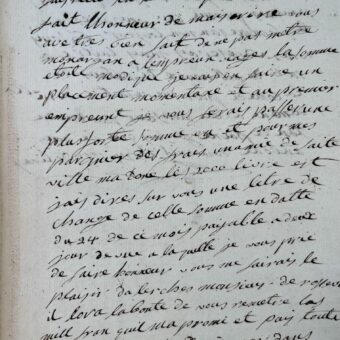 fait l'honneur de maycrire vous
avetres bien fait de ne pas metre
mon argan a lempreun cares la somme
etoit modique je can faire un
placement momentane et au premier
empreunt je vous ferais passer une
plus forte somme et pour mes
pargnier des frais un amie de saite
ville ma done les 2000 livre et
jais dires sur vous une letre de
change de celle somme en datte
du 24 de ce mois payable a deux
jour de vue a la quelle je vous prie
de faire honneur vous me fairais le
plaisir da lerches monsieur de
il lora la bonte de vous remetre las
mill fran quil ma promi et pais toute
dans